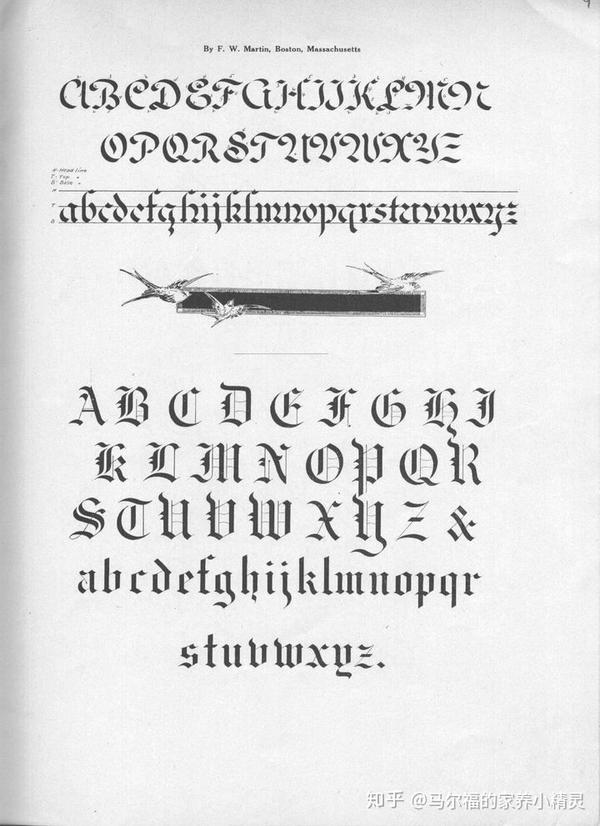 By F. W. Martin, Boston, Massachusetts
ABCDEFGHIJKLMN
OPQRSTUVWXYZ
H-Head line
T-Top "
B-Base "
H
T
B
abcdefghijklmnopqrstuvwxyz
A B C D E F G H I
K L M N O P Q R
S T U V W X Y Z &
abcdefghijklmnopqr
stuvwxyz.
知乎 @马尔福的家养小精灵